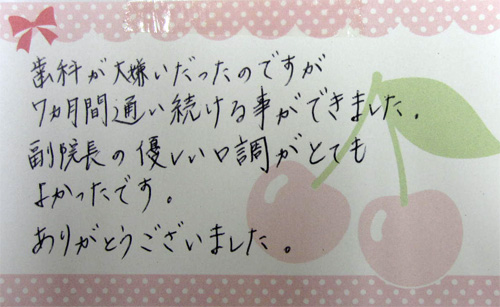 歯科が大嫌いだったのですが
7ヵ月間通い続ける事ができました。
副院長の優しい口調がとても
よかったです。
ありがとうございました。